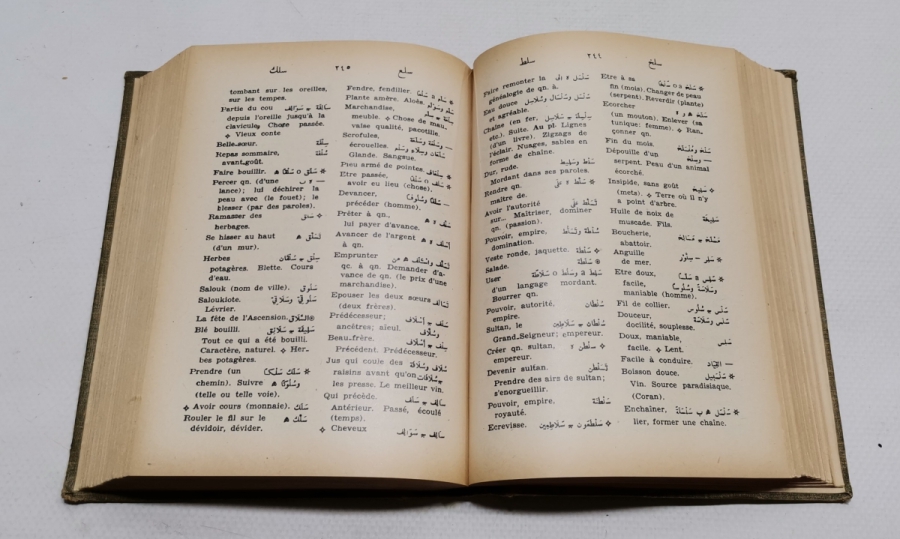 سلخ
٢٤٤
سلط
Etre à sa ✻ سَلَخَ
fin (mois). Changer de peau
(serpent). Reverdir (plante)
Ecorcher سَلَخَ
(un mouton). Enlever (sa
tunique: femme). ❖ Ran-
çonner qn.
Fin du mois. سَلْخ
Dépouille d'un
serpent. Peau d'un animal
écorché.
Insipide, sans goût
(mets). ❖ Terre où il n'y
a point d'arbre.
Huile de noix de سَلِيخَة
muscade. Fils.
Boucherie, مَسْلَخ ج مَسَالِخ
abattoir.
Anguille
de mer.
Etre doux, ✻ سَلِسَ
facile,
maniable (homme).
Fil de collier. سَلْس ج سُلُوس
Douceur, سَلَس وسَلَاسَة
docilité, souplesse.
Doux, maniable, سَلِس
facile. ❖ Lent.
Facile à conduire. — القِيَاد
Boisson douce. ✻ سَلْسَبِيل
Vin. Source paradisiaque,
(Coran).
Enchaîner, ✻ سَلْسَلَ
lier, former une chaîne.
Faire remonter la
généalogie de qn. à.
Eau douce
et agréable.
Chaîne (en fer, سِلْسِلَة ج سَلَاسِل
etc.). Suite. Au pl. Lignes
(d'un livre). Zigzags de
l'éclair. Nuages, sables en
forme de chaîne.
Dur, rude. سَلْط وسَلِيط
Mordant dans ses paroles.
Rendre qn. ✻ سَلَّطَ ه عَلَى
maître de.
Avoir l'autorité تَسَلَّطَ عَلَى
sur... Maîtriser, dominer
qn. (passion).
Pouvoir, empire,
domination.
Veste ronde, jaquette. ❖ سَلْطَة
Salade. سَلَطَة
User
d'un langage mordant.
Bourrer qn.
Pouvoir, autorité, سُلْطَان
empire.
Sultan, le سُلْطَان ج سَلَاطِين
Grand-Seigneur; empereur.
Créer qn. sultan, ❖ سَلْطَنَ ه
empereur.
Devenir sultan. تَسَلْطَنَ
Prendre des airs de sultan;
s'enorgueillir.
Pouvoir, empire, سَلْطَنَة
royauté.
Ecrevisse. ❖ سَلْطَعُون ج سَلَاطِعِين
سلع
٢٤٥
سلك
Fendre, fendiller. ✻ سَلَعَ
Plante amère. Aloès. سَلَع
Marchandise, سِلْعَة ج سِلَع
meuble. ❖ Chose de mau-
vaise qualité, pacotille.
Scrofules,
écrouelles.
Glande. Sangsue.
Pieu armé de pointes.
Etre passée, ✻ سَلَفَ
avoir eu lieu (chose).
Devancer,
précéder (homme).
Prêter à qn., سَلَّفَ ه
lui payer d'avance.
Avancer de l'argent أَسْلَفَ ه
à qn.
Emprunter تَسَلَّفَ واسْتَسْلَفَ
qc. à qn. Demander d'a-
vance de qn. (le prix d'une
marchandise).
Epouser les deux sœurs تَسَالَفَ
(deux frères).
Prédécesseur; سَلَف ج أَسْلَاف
ancêtres; aïeul.
Beau-frère. سِلْف ج أَسْلَاف
Précédent. Prédécesseur.
Jus qui coule des سُلَاف وسُلَافَة
raisins avant qu'on
les presse. Le meilleur vin.
Qui précède. سَالِف ج سَلَف
Antérieur. Passé, écoulé
(temps).
❖ Cheveux سَالِف ج سَوَالِف
tombant sur les oreilles,
sur les tempes.
Partie du cou سَالِفَة ج سَوَالِف
depuis l'oreille jusqu'à la
clavicule. Chose passée.
❖ Vieux conte
Belle-sœur. سِلْفَة
Repas sommaire, سُلْفَة
avant-goût.
Faire bouillir. ✻ سَلَقَ
Percer qn. (d'une
lance); lui déchirer la
peau avec (le fouet); le
blesser (par des paroles).
Ramasser des ❖ سَلَّقَ
herbages.
Se hisser au haut تَسَلَّقَ ه
(d'un mur).
Herbes سِلْق ج سُلْقَان
potagères. Blette. Cours
d'eau.
Salouk (nom de ville). سَلُوق
Saloukiote. سَلُوقِيّ وسَلَاقِيّ
Lévrier.
La fête de l'Ascension. السُّلَّاق
Blé bouilli. سَلِيقَة ج سَلَائِق
Tout ce qui a été bouilli.
Caractère, naturel. ❖ Her-
bes potagères.
Prendre (un ✻ سَلَكَ
chemin). Suivre
(telle ou telle voie).
❖ Avoir cours (monnaie). سَلَكَ
Rouler le fil sur le سَلَّكَ ه
dévidoir, dévider.